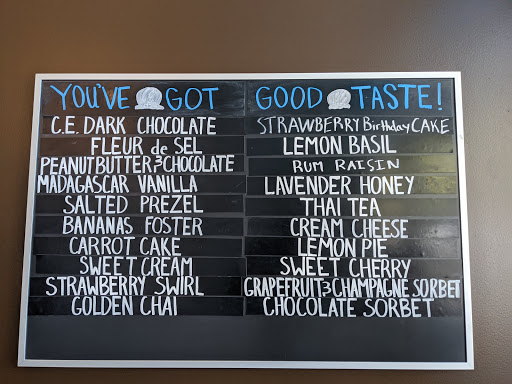 YOU'VE GOT GOOD TASTE!
C.E. DARK CHOCOLATE
FLEUR de SEL
PEANUT BUTTER & CHOCOLATE
MADAGASCAR VANILLA
SALTED PREZEL
BANANAS FOSTER
CARROT CAKE
SWEET CREAM
STRAWBERRY SWIRL
GOLDEN CHAI
STRAWBERRY BirthdAY CAKE
LEMON BASIL
RUM RAISIN
LAVENDER HONEY
THAI TEA
CREAM CHEESE
LEMON PIE
SWEET CHERRY
GRAPEFRUIT & CHAMPAGNE SORBET
CHOCOLATE SORBET